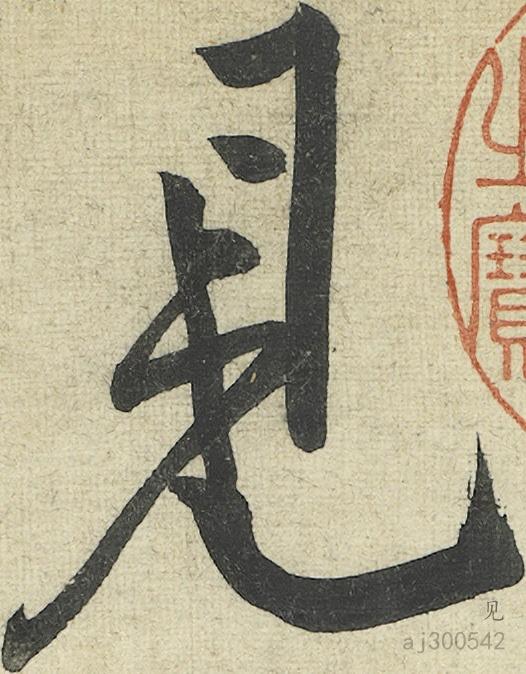 見
之寶
见
aj300542